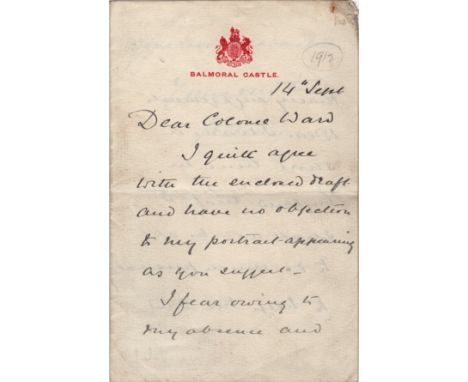 1912
BALMORAL CASTLE.
14th Sept
Dear Colonel Ward
I quite agree
with the enclosed draft
and have no objection
to my portrait appearing
as you suggest -
I fear owing to
my absence and